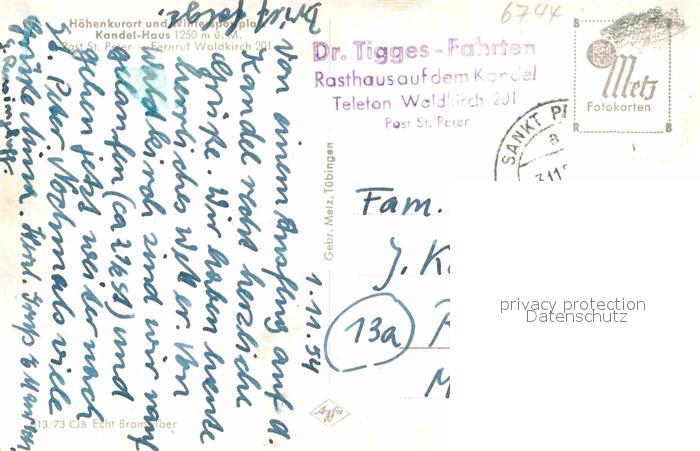 Höhenkurort und Wintersportplatz
Kandel-Haus 1250 m ü. M.
Post St. Peter - Fernruf Waldkirch 201
6744
Dr. Tigges-Fahrten
Rasthaus auf dem Kandel
Telefon Waldkirch 201
Post St. Peter
B
Metz
Fotokarten
R
B
SANKT PE
a
Gebr. Metz, Tübingen
1.11.54
Brief folgt.
Von einem Ausflug auf d.
Kandel recht herzliche
Grüße. Wir haben heute
herrliches Wetter. Von
Waldkirch sind wir rauf
gelaufen (ca 2½ Std) und
gehen jetzt weiter nach
St. Peter. Nochmals viele
Grüße
Fam.
J. K
13a
M
privacy protection
Datenschutz
13/73 CJB Echt Bromsilber